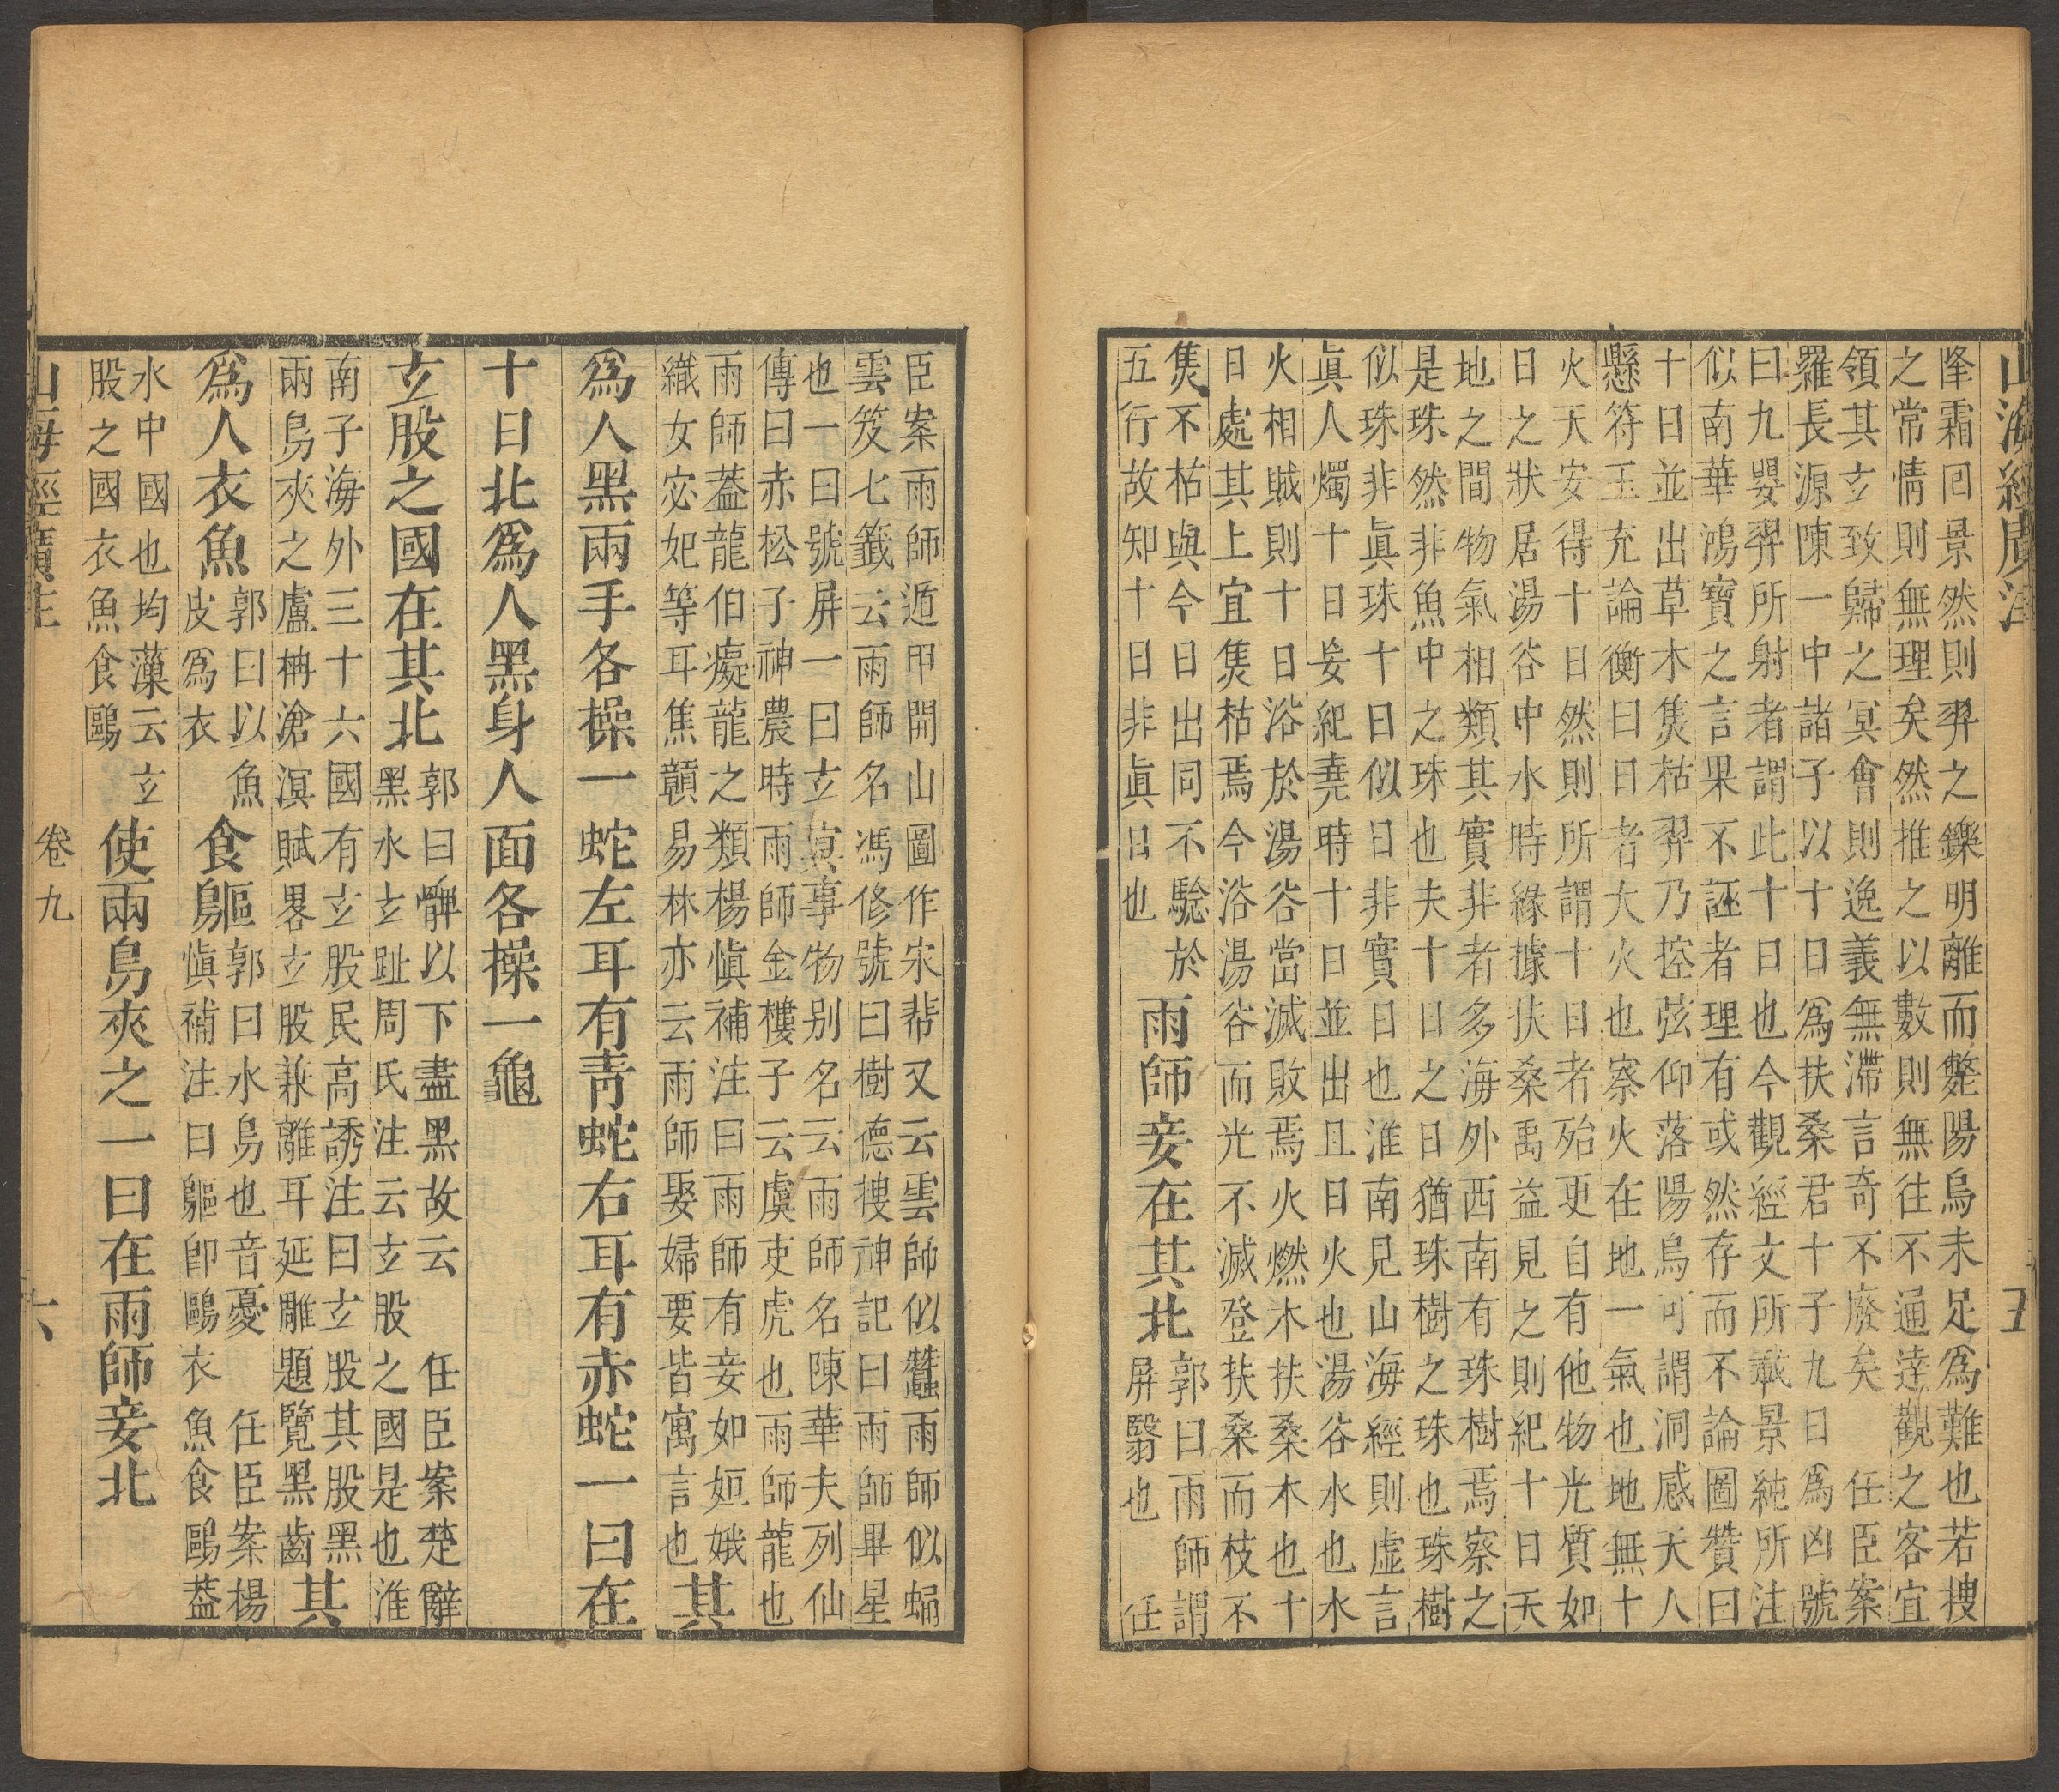 山海經廣注
五
降霜回景然則羿之鑠明離而斃陽烏未足爲難也若搜
之常情則無理矣然推之以數則無往不通逹觀之客宜
領其玄致歸之冥會則逸義無滯言奇不廢矣 任臣案
羅長源陳一中諸子以十日爲扶桑君十子九日爲凶號
曰九嬰羿所射者謂此十日也今觀經文所載景純所注
似南華鴻寶之言果不誣者理有或然存而不論圖贊曰
十日並出草木焦枯羿乃控弦仰落陽烏可謂洞感天人
懸符王充論衡曰日者大火也察火在地一氣也地無十
火天安得十日然則所謂十日者殆更自有他物光質如
日之狀居湯谷中水時緣據扶桑禹益見之則紀十日天
地之間物氣相類其實非者多海外西南有珠樹焉察之
是珠然非魚中之珠也夫十日之日猶珠樹之珠也珠樹
似珠非眞珠十日似日非實日也淮南見山海經則虛言
眞人燭十日妄紀堯時十日並出且日火也湯谷水也水
火相賊則十日浴於湯谷當滅敗焉火燃木扶桑木也十
日處其上宜焦枯焉今浴湯谷而光不滅登扶桑而枝不
焦不枯與今日出同不驗於
五行故知十日非眞日也
雨師妾在其北
郭曰雨師謂
屏翳也 任
臣案雨師遁甲開山圖作宋又云雲師似蠶雨師似蛹
雲笈七籤云雨師名馮修號曰樹德搜神記曰雨師畢星
也一曰號屏一曰玄冥事物别名云雨師名陳華夫列仙
傳曰赤松子神農時雨師金樓子云虞吏虎也雨師龍也
雨師葢龍伯癡龍之類楊愼補注曰雨師有妾如姮娥
織女宓妃等耳焦贑易林亦云雨師娶婦要皆寓言也
其
爲人黑兩手各操一蛇左耳有靑蛇右耳有赤蛇一曰在
十日北爲人黑身人面各操一龜
玄股之國在其北
郭曰髀以下盡黑故云 任臣案楚辭
黑水玄趾周氏注云玄股之國是也淮
南子海外三十六國有玄股民高誘注曰玄股其股黑
兩鳥夾之盧柟滄溟賦畧玄股兼離耳延雕題覽黑齒
其
爲人衣魚
郭曰以魚
皮爲衣
食䳼
郭曰水鳥也音憂 任臣案楊
愼補注曰䳼卽鷗衣魚食鷗葢
水中國也均藻云玄
股之國衣魚食鷗
使兩鳥夾之一曰在雨師妾北
山海經廣注
卷九
六